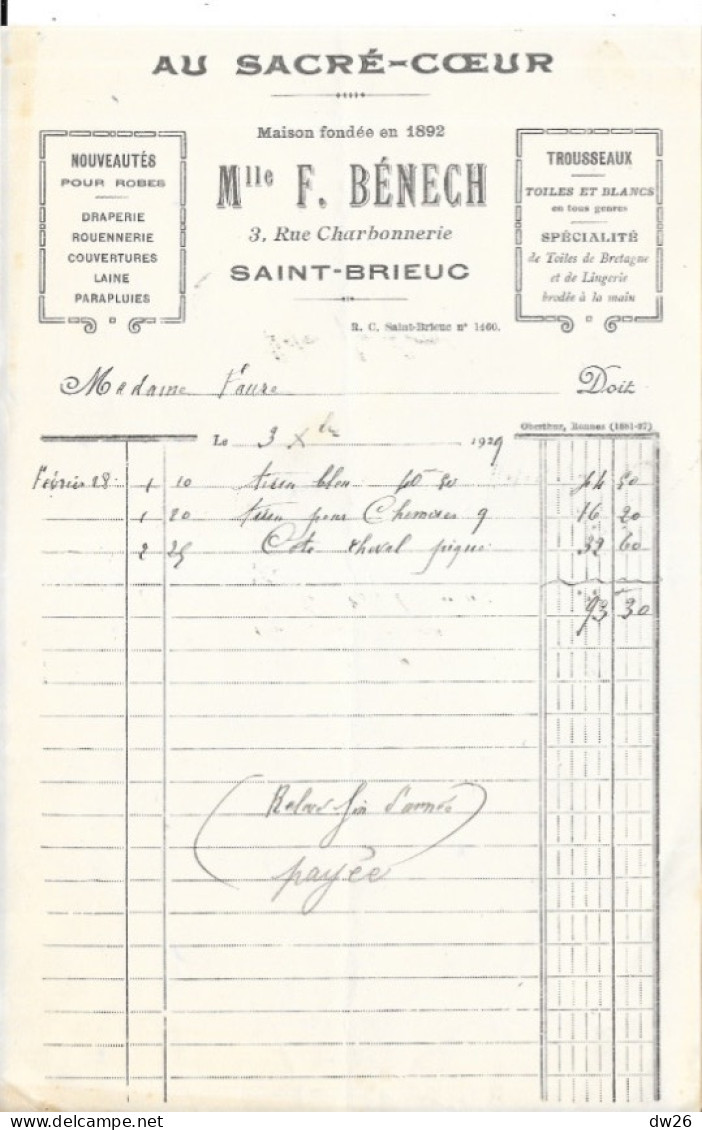 AU SACRÉ-CŒUR
Maison fondée en 1892
Mlle F. BÉNECH
3, Rue Charbonnerie
SAINT-BRIEUC
R. C. Saint-Brieuc nº 1460.
NOUVEAUTÉS
POUR ROBES
DRAPERIE
ROUENNERIE
COUVERTURES
LAINE
PARAPLUIES
TROUSSEAUX
TOILES ET BLANCS
en tous genres
SPÉCIALITÉ
de Toiles de Bretagne
et de Lingerie
brodée à la main
Madame Faure Doit
Oberthur, Rennes (1881-27)
Le 3 Xbre 1929
Février 28 1 10 tissu bleu 40 50 44 50
1 20 tissu pour Chemises 9 16 20
2 25 Cote cheval piqué 32 60
93 30
fin d'année
payée
dw26